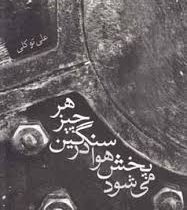 علی توکلی
هر
چیز
سنگین
هوا
پخش
می شود